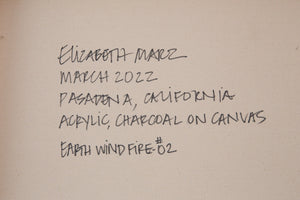 ELIZABETH MARZ
MARCH 2022
PASADENA, CALIFORNIA
ACRYLIC, CHARCOAL ON CANVAS
EARTH WIND FIRE #02